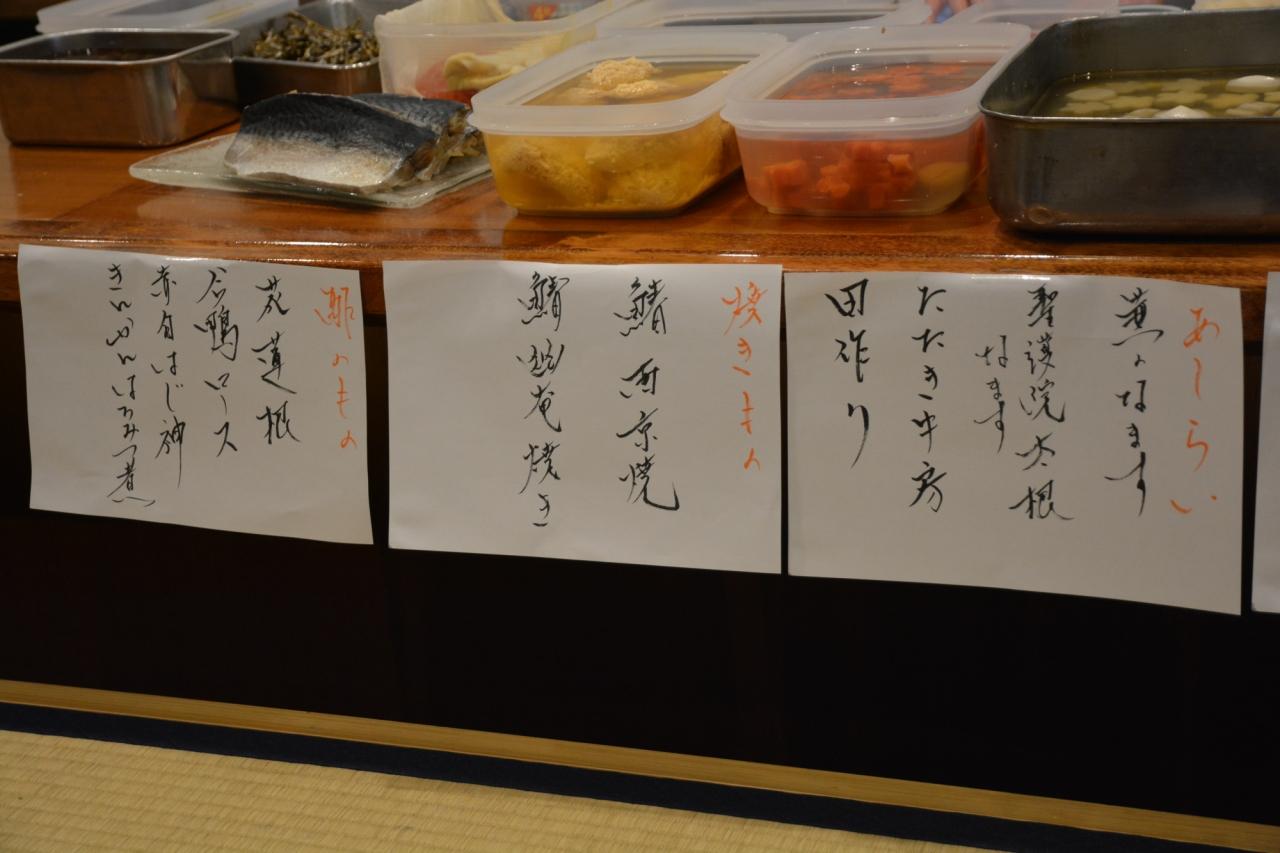 あしらい
煮なます
聖護院大根
なます
たたき牛房
田作り
焼きもの
鯖西京焼
鯖幽庵焼き
酢のもの
花蓮根
合鴨ロース
赤白はじ神
きんかんはちみつ煮